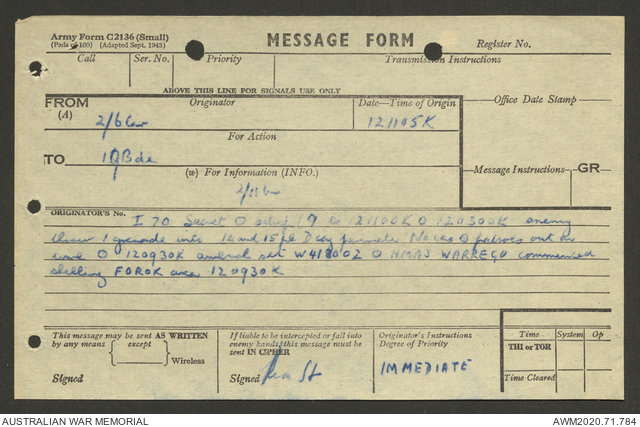 Army Form C2136 (Small)
(Pads of 100) (Adapted Sept. 1943)
MESSAGE FORM
Register No.
Call
Ser. No.
Priority
Transmission Instructions
ABOVE THIS LINE FOR SIGNALS USE ONLY
FROM
Originator
Date—Time of Origin
Office Date Stamp
(A)
2/6
121105K
For Action
TO
17 Bde
(w) For Information (INFO.)
Message Instructions
GR
2/11 Bn
ORIGINATOR'S No.
I 70 Secret O sitrep 19 to 121100K O 120300K enemy
threw 1 grenade into 14 and 15 pl D coy perimeter No cas O patrols out on
O 120930K W418002 O HMAS WARREGO commenced
shelling FOROK area 120930K
This message may be sent AS WRITTEN
by any means
except
Wireless
Signed
If liable to be intercepted or fall into
enemy hands, this message must be
sent IN CIPHER
Signed
Originator's Instructions
Degree of Priority
IMMEDIATE
Time
System
Op
THI or TOR
Time Cleared
AUSTRALIAN WAR MEMORIAL
AWM2020.71.784